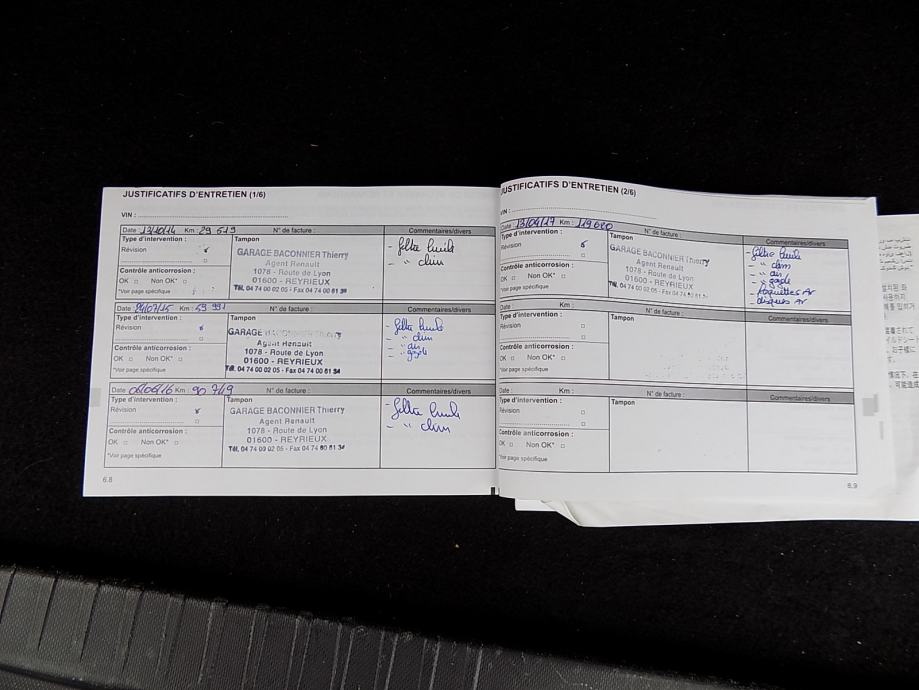 JUSTIFICATIFS D'ENTRETIEN (1/6)
VIN :
Date 13/10/14 Km : 29 619 N° de facture : Commentaires/divers
Type d'intervention : Tampon
Révision
GARAGE BACONNIER Thierry
Agent Renault
1078 - Route de Lyon
01600 - REYRIEUX
Tél. 04 74 00 02 05 - Fax 04 74 00 81 34
- filtre huile
- " clim
Contrôle anticorrosion :
OK Non OK*
*Voir page spécifique
Date /07/15 Km : N° de facture : Commentaires/divers
Type d'intervention : Tampon
Révision
GARAGE BACONNIER Thierry
Agent Renault
1078 - Route de Lyon
01600 - REYRIEUX
Tél. 04 74 00 02 05 - Fax 04 74 00 81 34
- filtre huile
- " clim
- " air
- " gazole
Contrôle anticorrosion :
OK Non OK*
*Voir page spécifique
Date Km : 90 719 N° de facture : Commentaires/divers
Type d'intervention : Tampon
Révision
GARAGE BACONNIER Thierry
Agent Renault
1078 - Route de Lyon
01600 - REYRIEUX
Tél. 04 74 00 02 05 - Fax 04 74 00 81 34
- filtre huile
- " clim
Contrôle anticorrosion :
OK Non OK*
*Voir page spécifique
6.8
JUSTIFICATIFS D'ENTRETIEN (2/6)
VIN :
Date : 13/04/17 Km : 119 680 N° de facture : Commentaires/divers
Type d'intervention : Tampon
Révision
GARAGE BACONNIER Thierry
Agent Renault
1078 - Route de Lyon
01600 - REYRIEUX
Tél. 04 74 00 02 05 - Fax 04 74 00 81
- filtre huile
- " clim
- " air
- " gazole
- plaquettes Ar
- disques Ar
Contrôle anticorrosion :
OK Non OK*
*Voir page spécifique
Date : Km : N° de facture : Commentaires/divers
Type d'intervention : Tampon
Révision
Contrôle anticorrosion :
OK Non OK*
*Voir page spécifique
Date : Km : N° de facture : Commentaires/divers
Type d'intervention : Tampon
Révision
Contrôle anticorrosion :
OK Non OK*
*Voir page spécifique
6.9